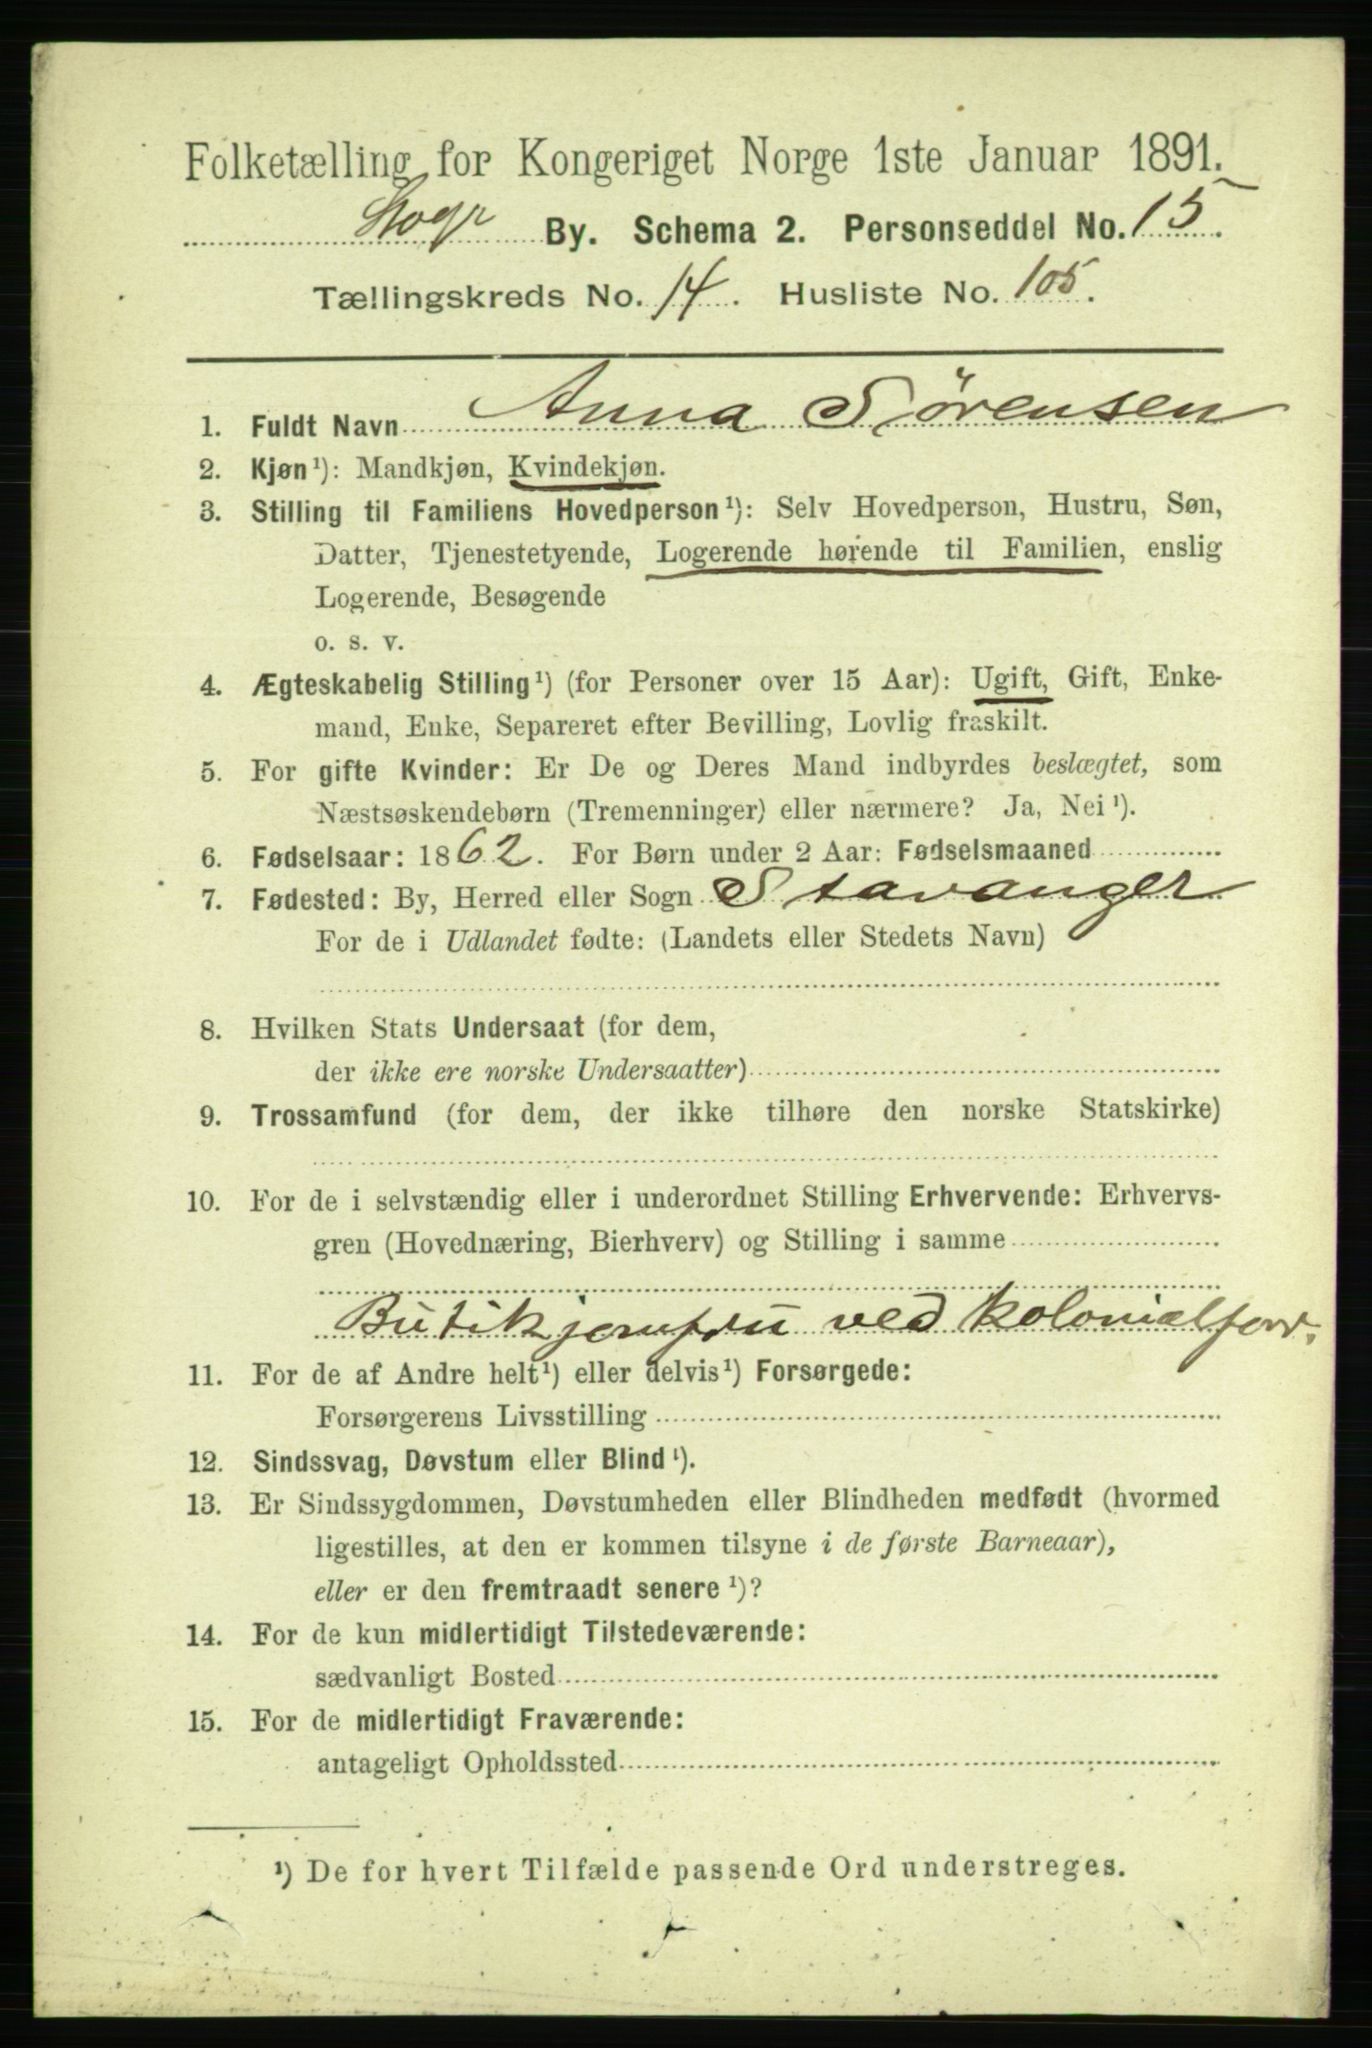 Folketælling for Kongeriget Norge 1ste Januar 1891.
By. Schema 2. Personseddel No. 15.
Tællingskreds No. 14. Husliste No. 105.
1. Fuldt Navn Anna Sørensen
2. Kjøn¹): Mandkjøn, Kvindekjøn.
3. Stilling til Familiens Hovedperson¹): Selv Hovedperson, Hustru, Søn,
Datter, Tjenestetyende, Logerende hørende til Familien, enslig
Logerende, Besøgende
o. s. v.
4. Ægteskabelig Stilling¹) (for Personer over 15 Aar): Ugift, Gift, Enke-
mand, Enke, Separeret efter Bevilling, Lovlig fraskilt.
5. For gifte Kvinder: Er De og Deres Mand indbyrdes beslægtet, som
Næstsøskendebørn (Tremenninger) eller nærmere? Ja, Nei¹).
6. Fødselsaar: 1862. For Børn under 2 Aar: Fødselsmaaned
7. Fødested: By, Herred eller Sogn Stavanger
For de i Udlandet fødte: (Landets eller Stedets Navn)
8. Hvilken Stats Undersaat (for dem,
der ikke ere norske Undersaatter)
9. Trossamfund (for dem, der ikke tilhøre den norske Statskirke)
10. For de i selvstændig eller i underordnet Stilling Erhvervende: Erhvervs-
gren (Hovednæring, Bierhverv) og Stilling i samme
Butikjomfru ved kolonialforr.
11. For de af Andre helt¹) eller delvis¹) Forsørgede:
Forsørgerens Livsstilling
12. Sindssvag, Døvstum eller Blind¹).
13. Er Sindssygdommen, Døvstumheden eller Blindheden medfødt (hvormed
ligestilles, at den er kommen tilsyne i de første Barneaar),
eller er den fremtraadt senere¹)?
14. For de kun midlertidigt Tilstedeværende:
sædvanligt Bosted
15. For de midlertidigt Fraværende:
antageligt Opholdssted
¹) De for hvert Tilfælde passende Ord understreges.